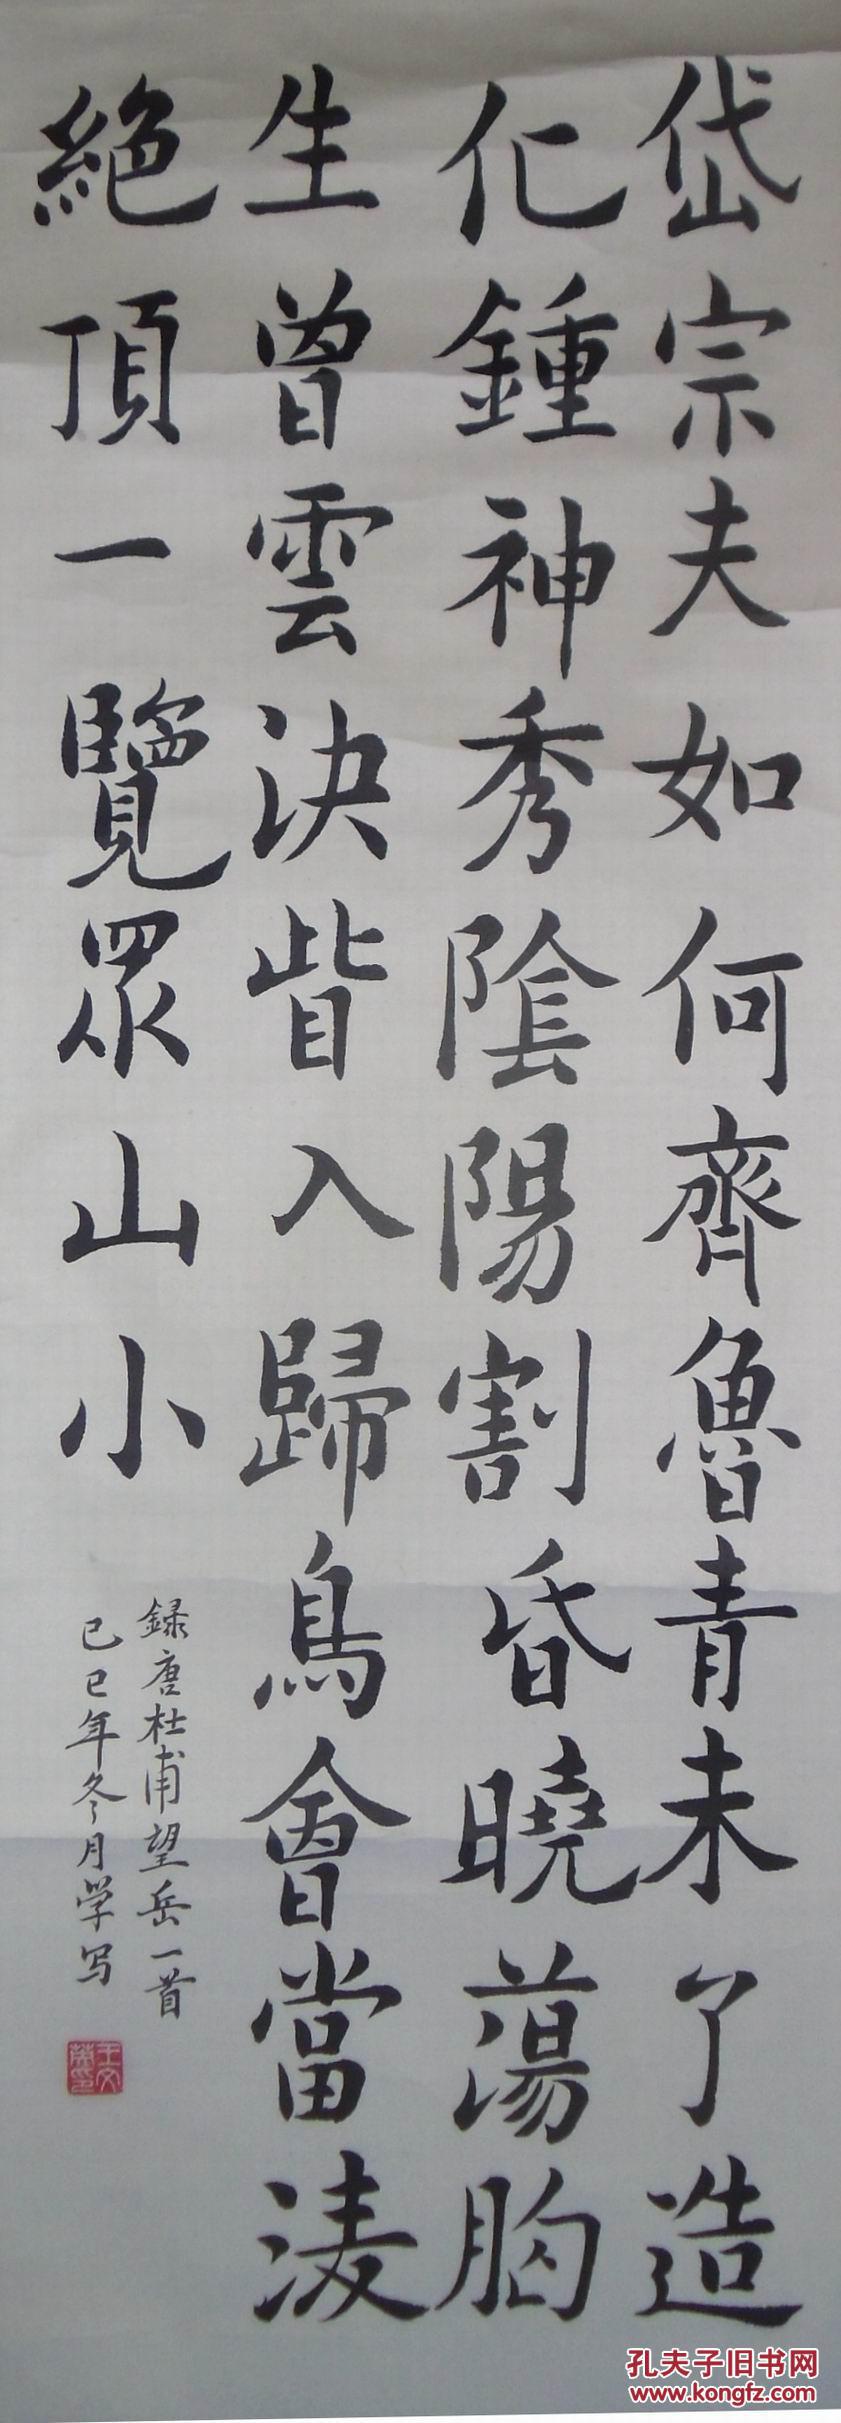 岱宗夫如何齊魯青未了造
化鍾神秀陰陽割昏曉蕩胸
生曾雲決眥入歸鳥會當淩
絕頂一覽眾山小
録唐杜甫望岳一首
己巳年冬月学写
王文
孔夫子旧书网
www.kongfz.com